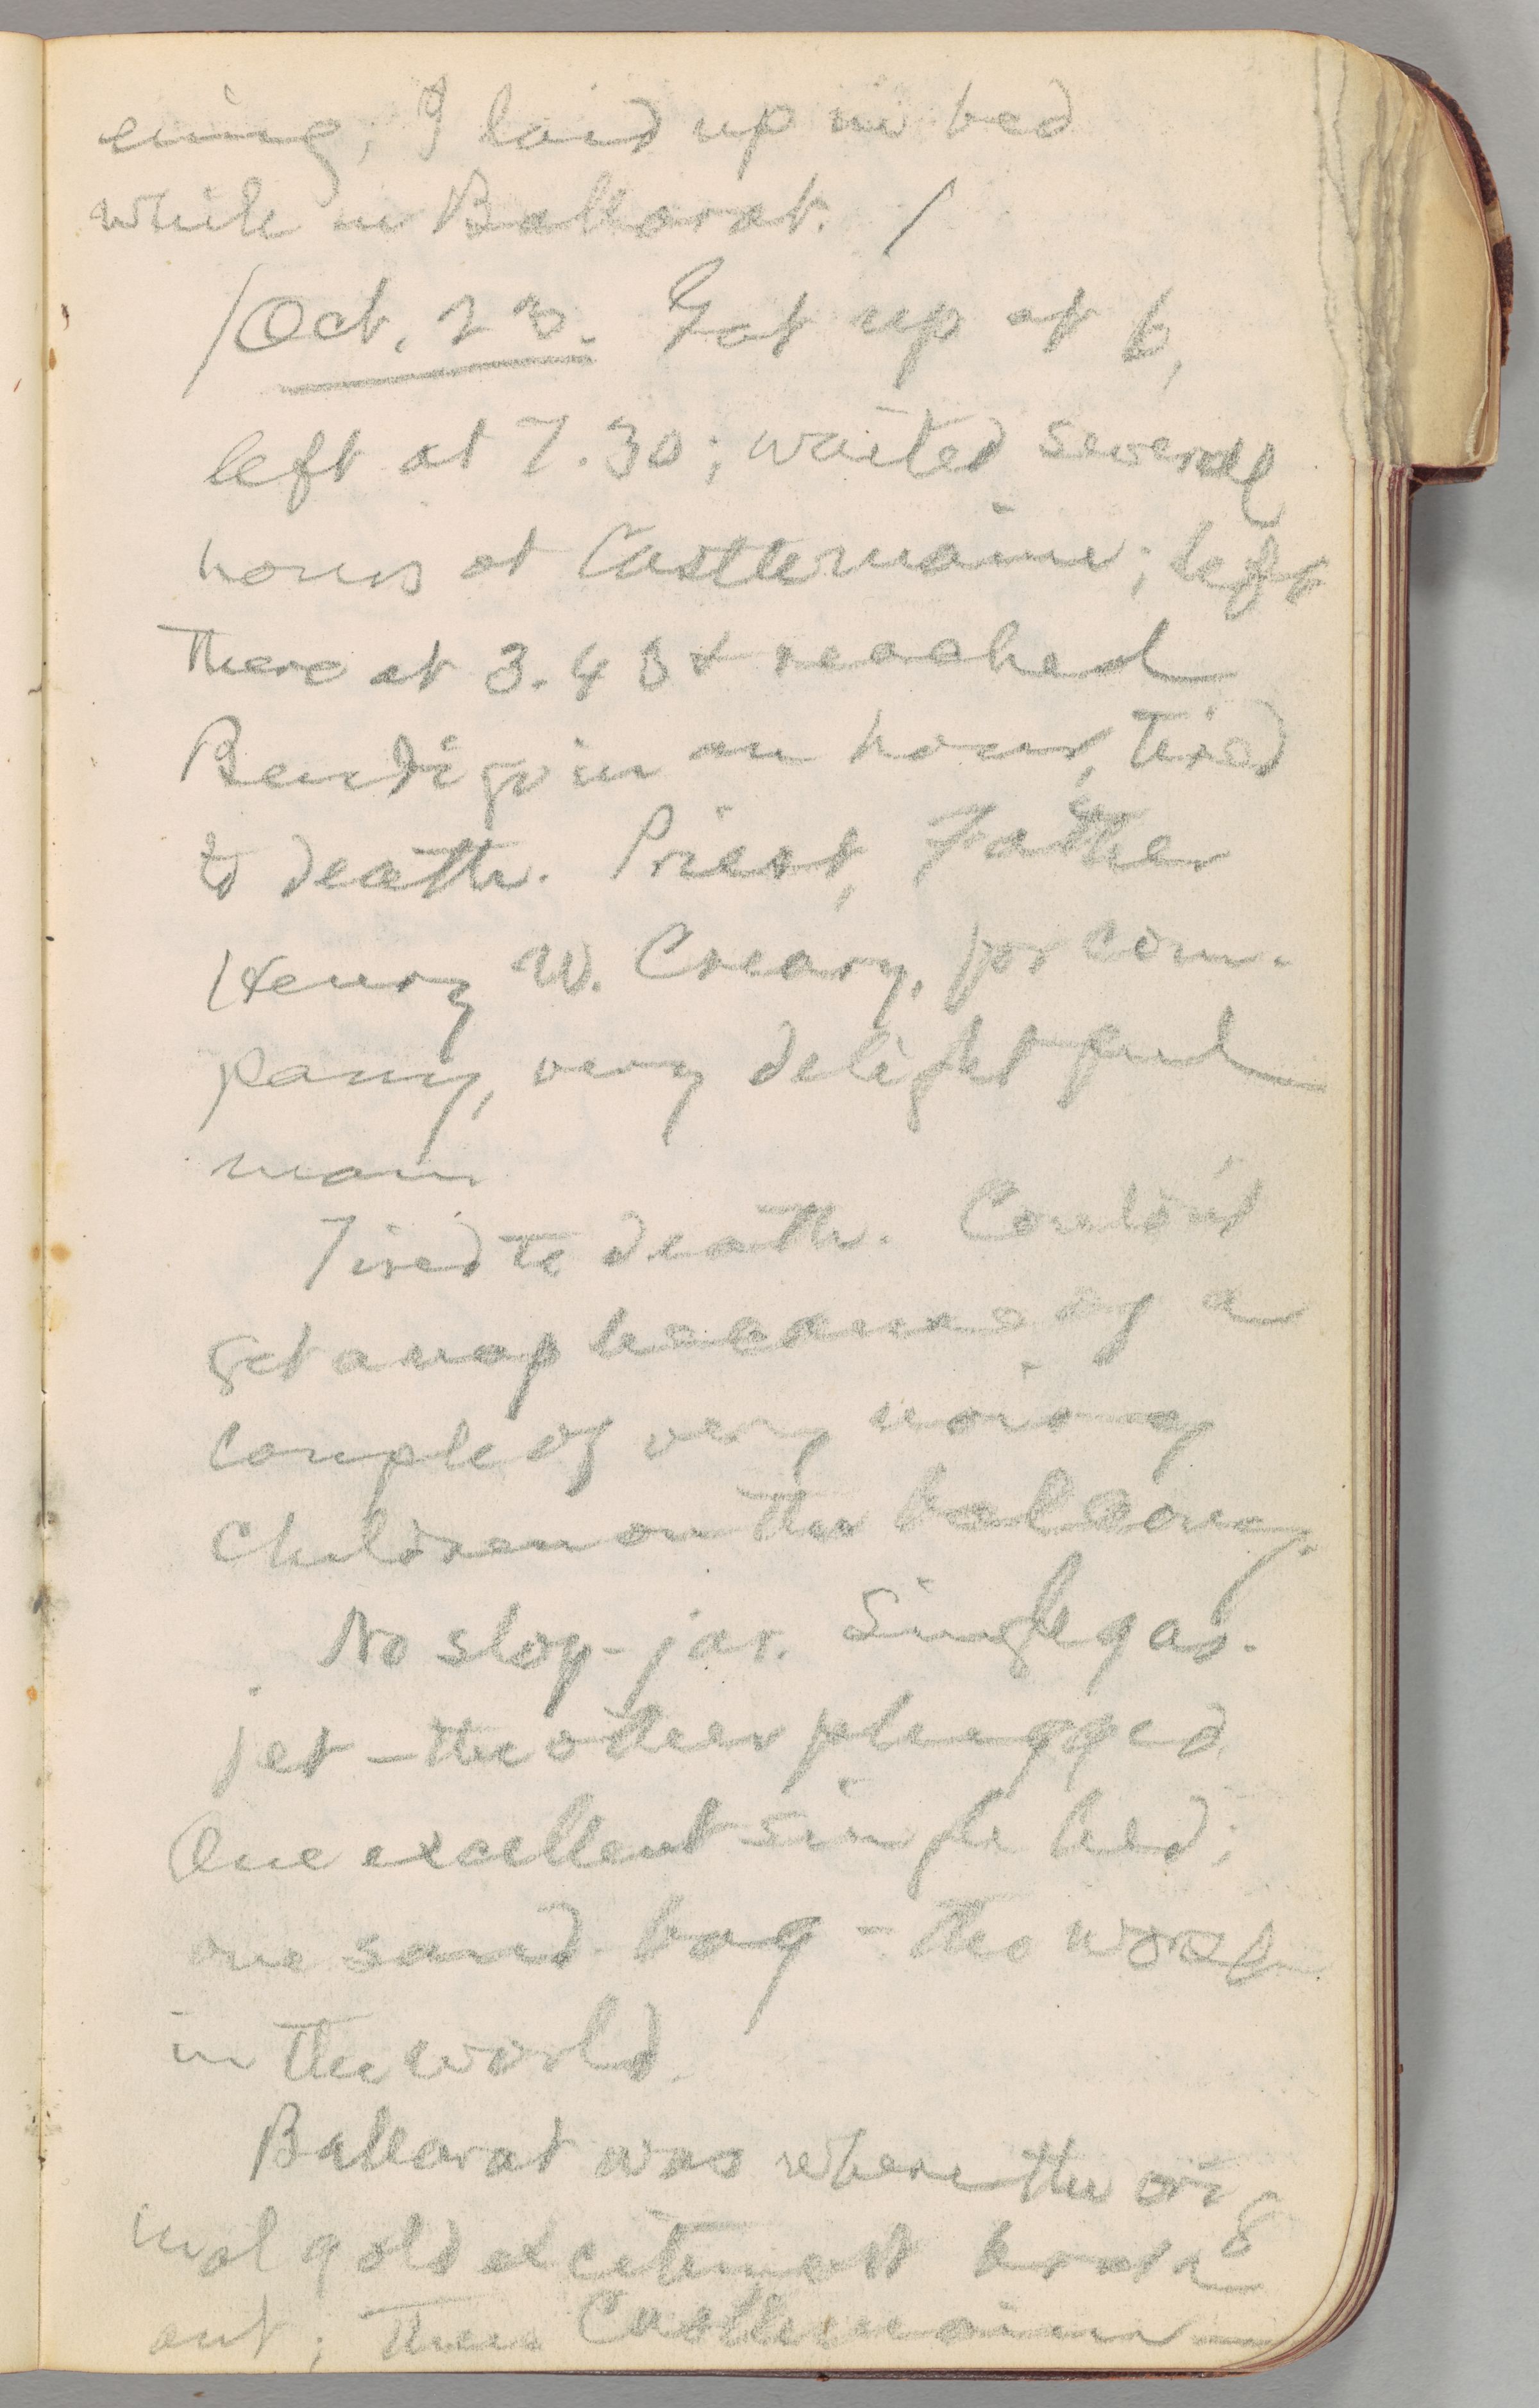 ening; I laid up in bed
while in Ballarat. /
/Oct. 23. Got up at 6,
left at 7.30; waited several
hours at Castlemaine; left
there at 3.45 & reached
Bendigo in an hour, tired
to death. Priest, Father
Henry W. Cleary, for com-
pany, very delightful
man
Tired to death. Couldn't
get a nap because of a
couple of very noisy
children on the balcony.
No slop-jar. Single gas-
jet — the other plugged.
One excellent single bed;
one sand-bag — the worst
in the world.
Ballarat was where the orig
inal gold excitement broke
out; then Castlemaine